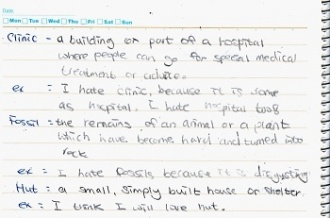 Date
Mon Tue Wed Thu Fri Sat Sun
Clinic - a building or part of a hospital
where people can go for special medical
treatment or advice.
ex : I hate clinic, because it is same
as hospital. I hate hospital too
Fossil : the remains of an animal or a plant
which have become hard and turned into
rock
ex : I hate fossils because it is disgusting
Hut : a small, simply built house or shelter.
ex : I think I will love hut.